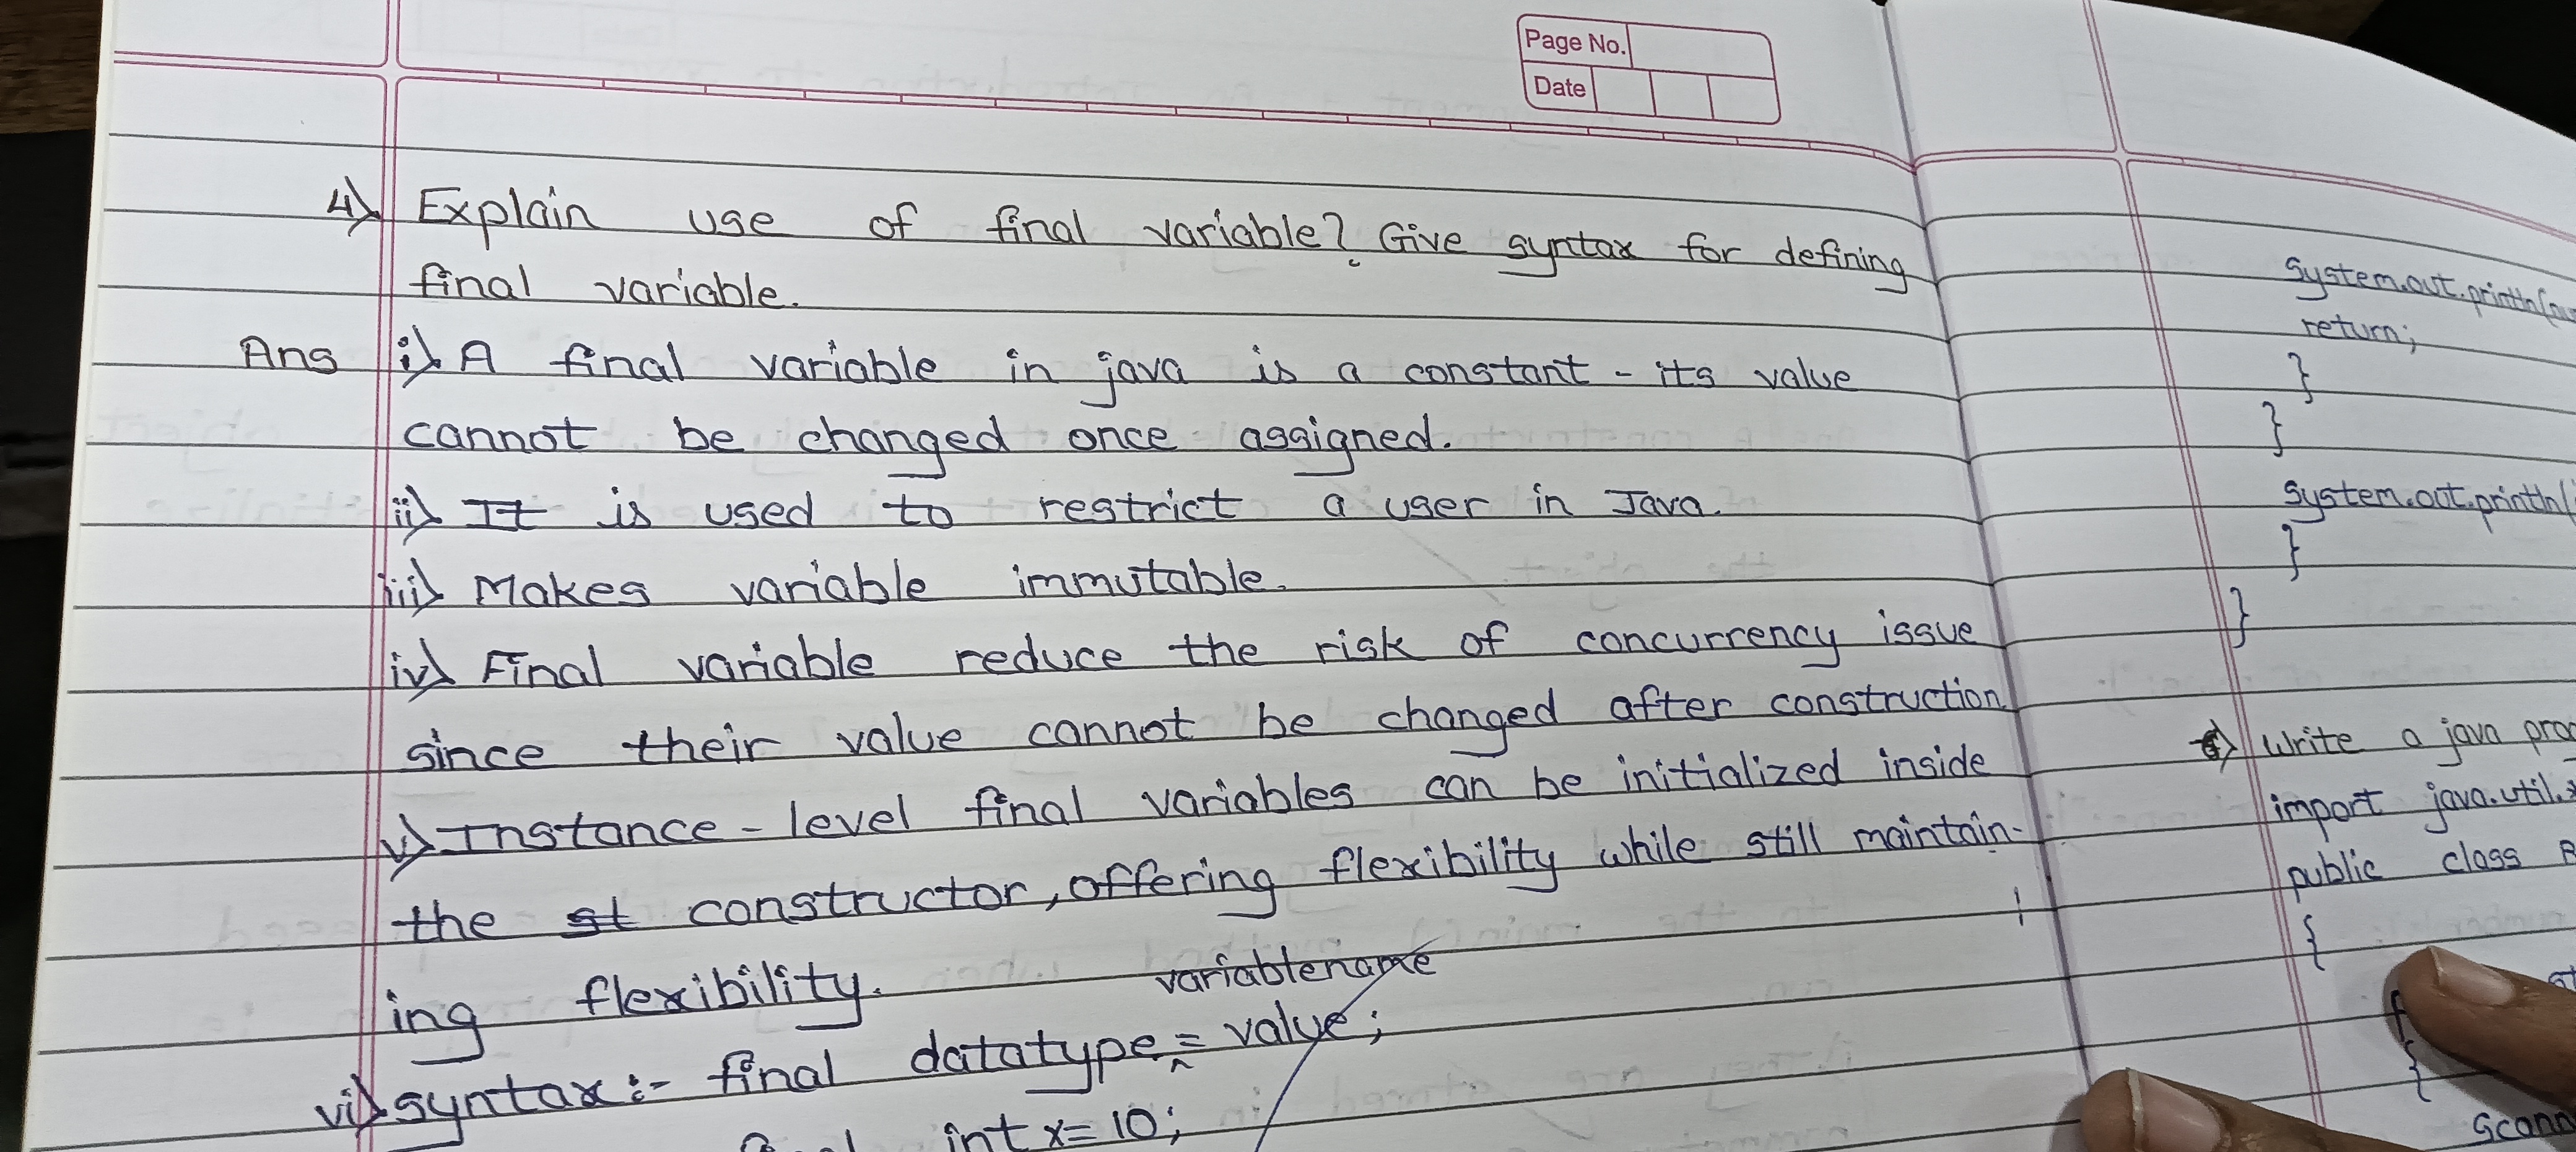 Page No.
Date
4) Explain use of final variable? Give syntax for defining
final variable.
Ans i) A final variable in java is a constant - its value
cannot be changed once assigned.
ii) It is used to restrict a user in Java.
iii) Makes variable immutable.
iv) Final variable reduce the risk of concurrency issue
since their value cannot be changed after construction.
v) Instance-level final variables can be initialized inside
the st constructor, offering flexibility while still maintain-
ing flexibility.
variablename
vi) syntax:- final datatype = value;
int x=10;
System.out.println(
return;
}
}
System.out.println(
}
}
Write a java
import java.util.
public class
{
{